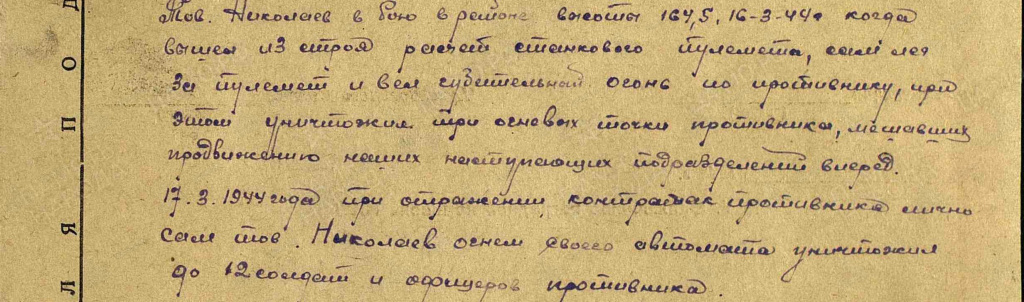 Тов. Николаев в бою в районе высоты 167,5, 16-3-44г когда
вышел из строя расчет станкового пулемета, сам лег
за пулемет и вел губительный огонь по противнику, при
этом уничтожил три огневых точки противника, мешавших
продвижению наших наступающих подразделений вперед.
17.3.1944 года при отражении контратак противника лично
сам тов. Николаев огнем своего автомата уничтожил
до 12 солдат и офицеров противника.
Л Я П О Д